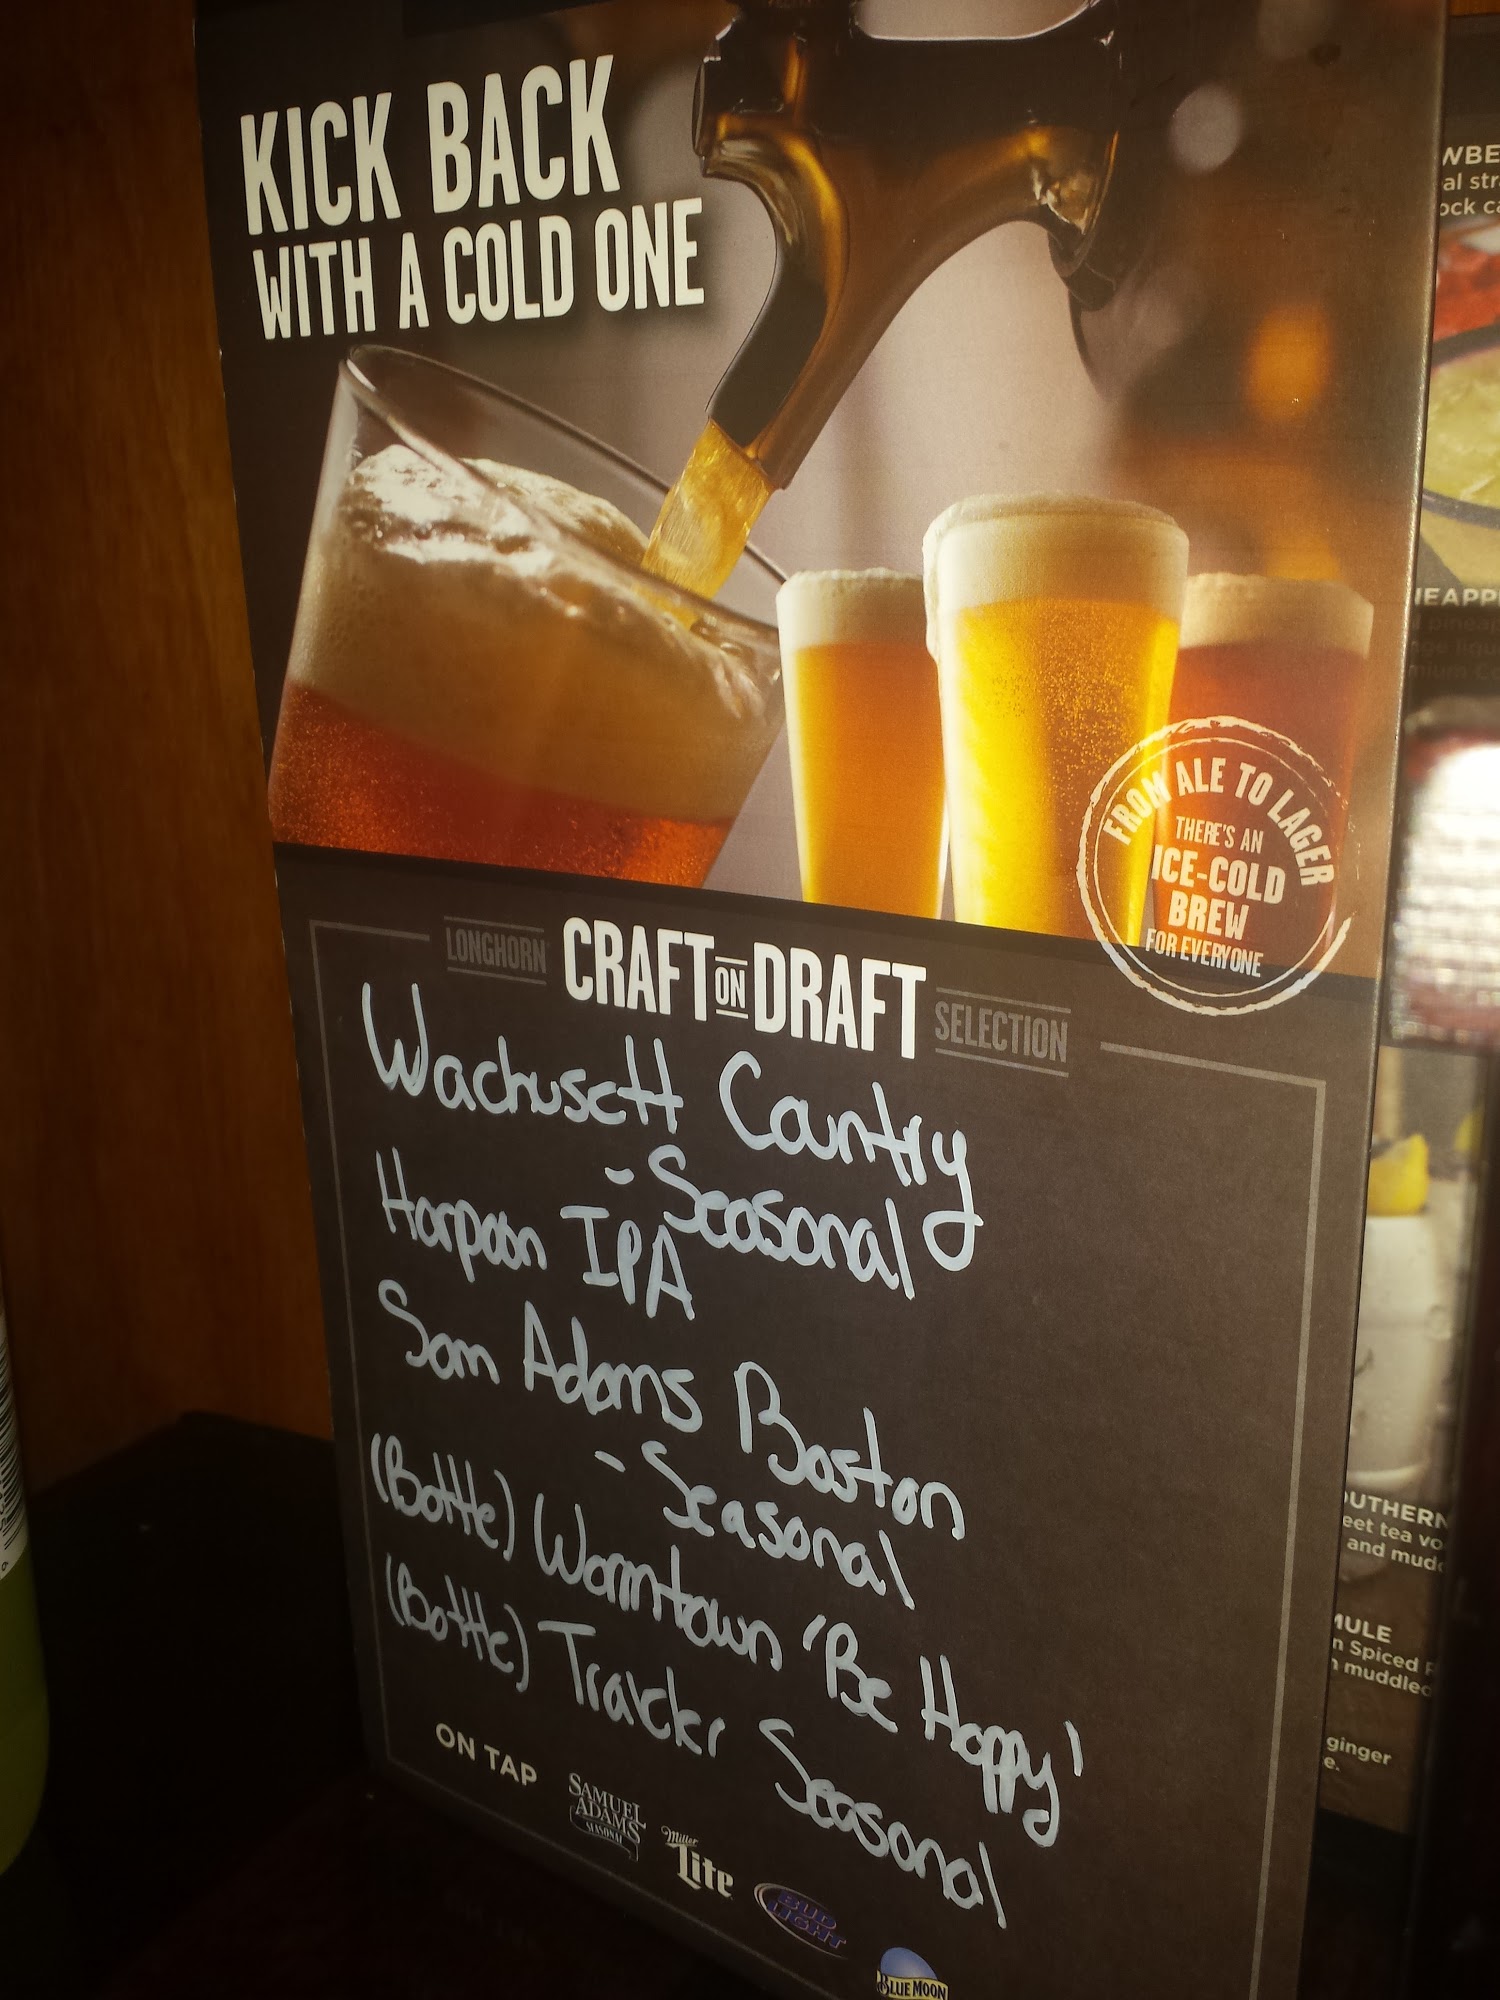 KICK BACK
WITH A COLD ONE
FROM ALE TO LAGER
THERE'S AN
ICE-COLD
BREW
FOR EVERYONE
LONGHORN CRAFT ON DRAFT SELECTION
Wachusett Country
- Seasonal
Harpoon IPA
Sam Adams Boston
- Seasonal
(Bottle) Wormtown 'Be Hoppy'
(Bottle) Traveler Seasonal
ON TAP
SAMUEL
ADAMS
SEASONAL
Miller
Lite
BUD
LIGHT
BLUE MOON
al str
ock ca
OUTHERN
eet tea vo
and mudd
MULE
n Spiced
muddled
ginger
e.